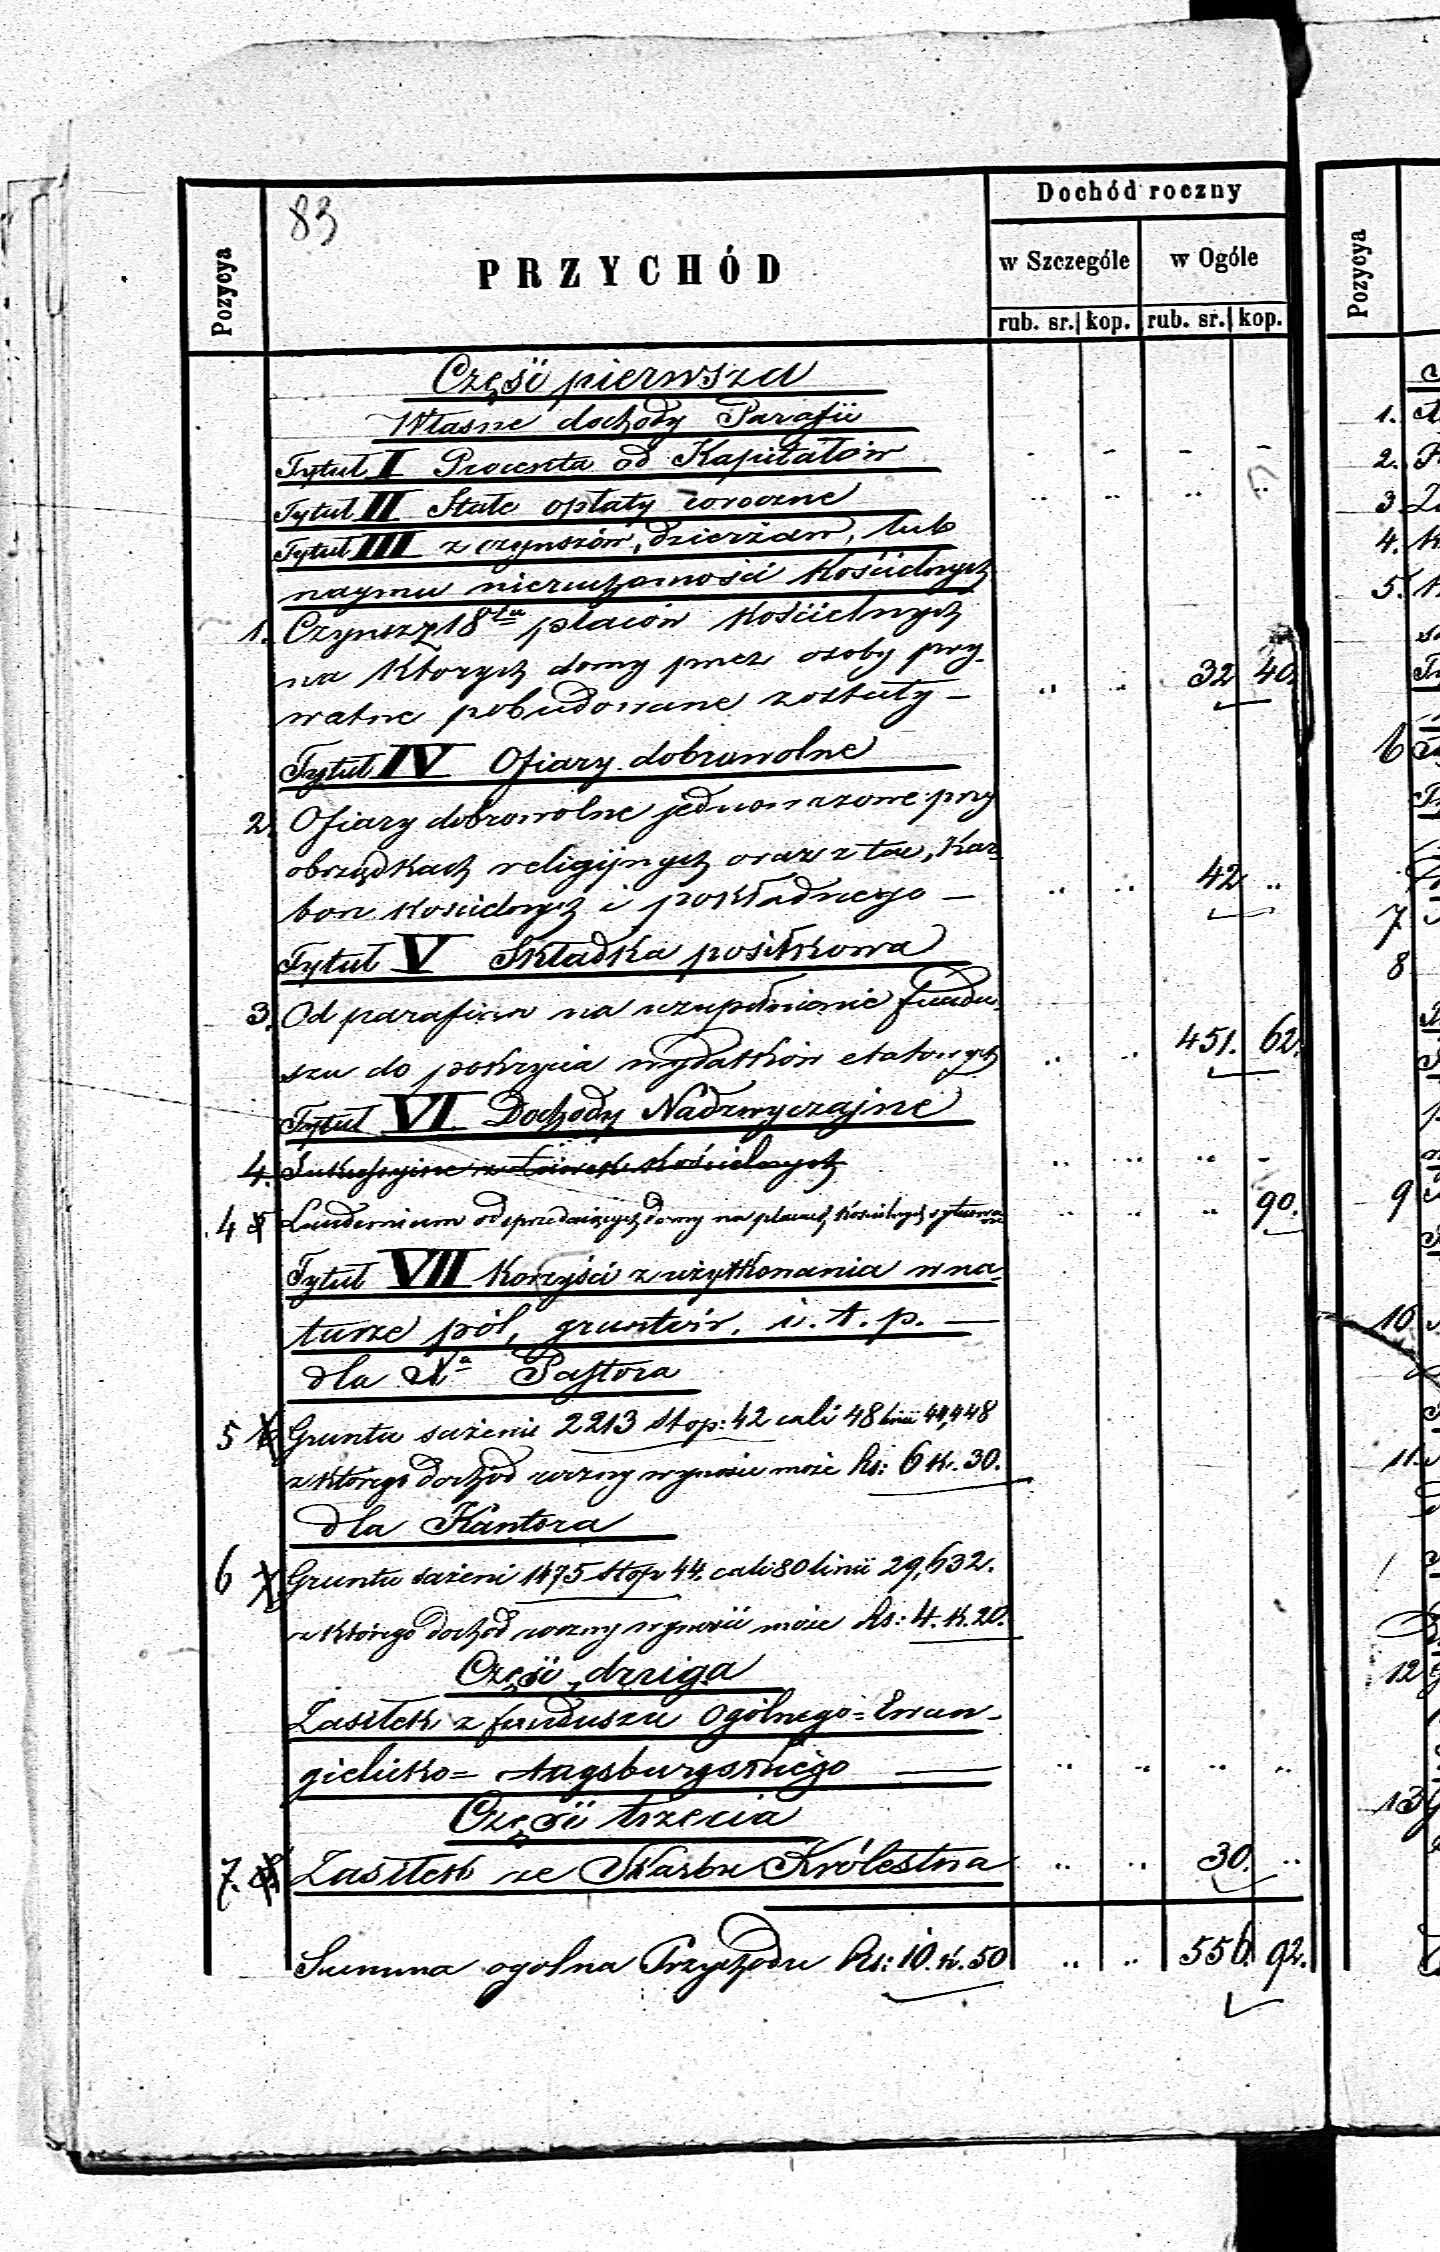 83
Pozycya
PRZYCHÓD
Dochód roczny
w Szczególe
w Ogóle
rub. sr. kop. rub. sr. kop.
Pozycya
Część pierwsza
Własne dochody Parafii
Tytuł I Procenta od Kapitałów - - - -
Tytuł II Stałe opłaty coroczne
Tytuł III z czynszów, dzierżaw, lub
naymu nieruchomości Kościelnych
1. Czynsz z 18tu placów Kościelnych
na Których domy przez osoby pry-
watne pobudowane zostały — 32 40.
Tytuł IV Ofiary dobrowolne
2. Ofiary dobrowolne jednorazowe przy
obrządkach religijnych oraz z tac, Kar-
bon Kościelnych i pokładnego — 42
Tytuł V Składka posiłkowa
3. Od parafian na uzupełnienie fundu-
szu do pokrycia wydatków etatowych 451. 62.
Tytuł VI. Dochody Nadzwyczajne
4. z Ławek Kościelnych
4 Laudemium od sprzedających domy na placach Kościelnych 90.
Tytuł VII Korzyści z użytkowania w na-
turze pól, gruntów, i. t. p. —
dla Xa Pastora
5 Gruntu sażeni 2213 stop: 42 cali 48 linii 44,448
z którego dochód roczny wynosić może Rs: 6 k. 30.
dla Kantora
6 Gruntu sażeni 1475 stop 44. cali 80 linii 29,632.
z którego dochód roczny wynosić może Rs: 4. k. 20.
Część druga
Zasiłek z funduszu Ogólnego = Ewan-
gielicko = Augsburgskiego —
Część trzecia
7. Zasiłek ze Skarbu Królestwa 30.
Summa ogolna Przychodu Rs: 10. k. 50 556. 92.
1.
2.
3
4.
5.
6
7
8
9
10
11.
12
13